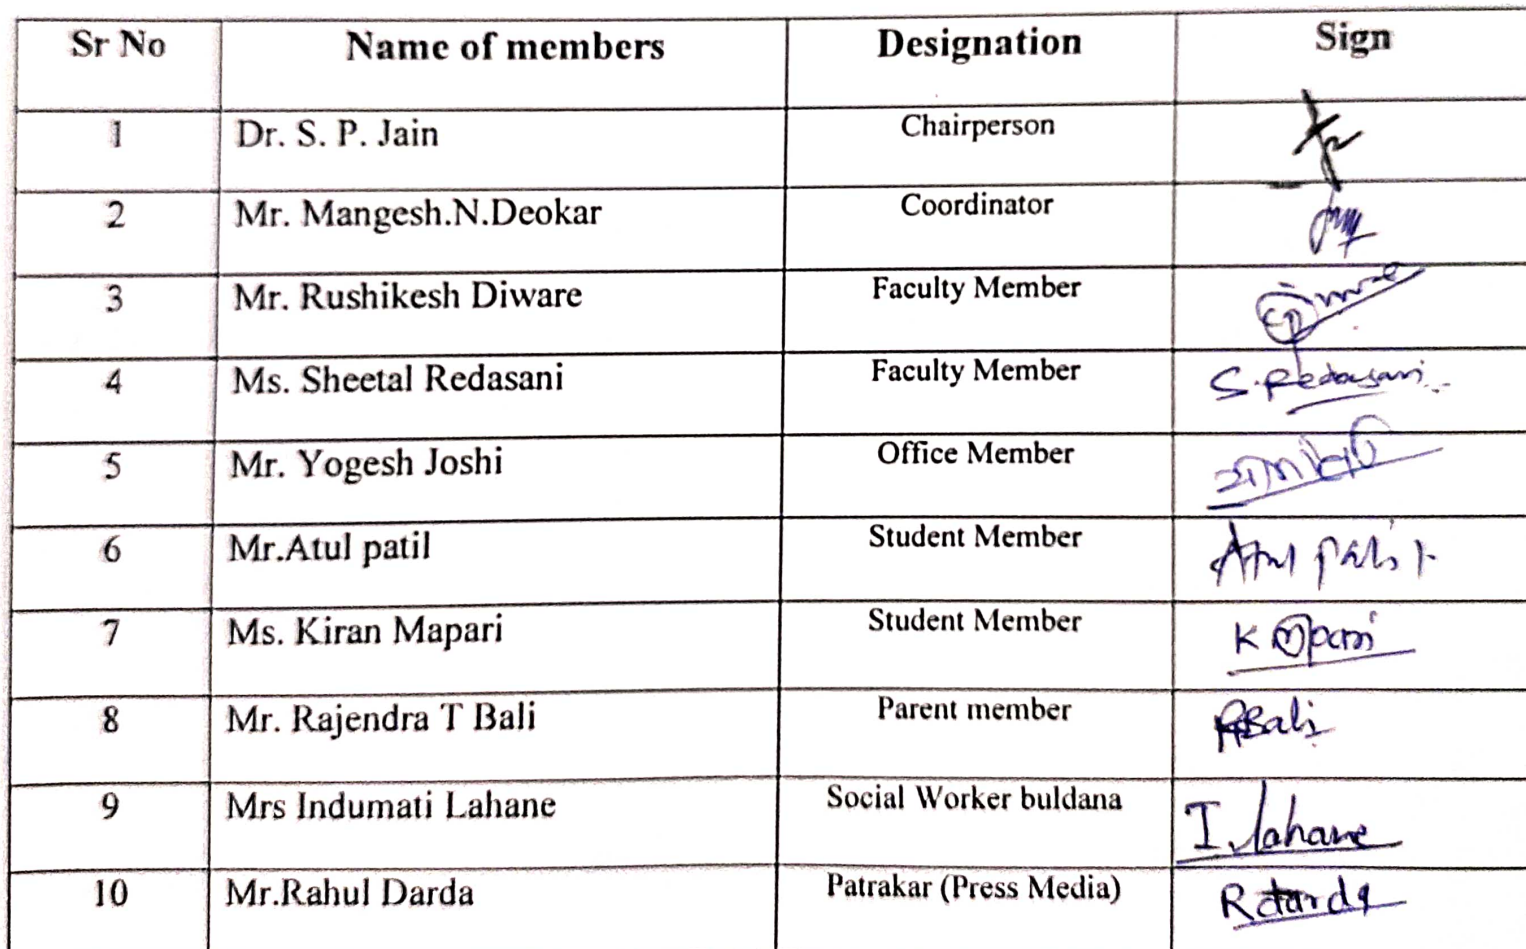 Sr No Name of members Designation Sign
1 Dr. S. P. Jain Chairperson
2 Mr. Mangesh.N.Deokar Coordinator
3 Mr. Rushikesh Diware Faculty Member
4 Ms. Sheetal Redasani Faculty Member S. Redasani
5 Mr. Yogesh Joshi Office Member
6 Mr.Atul patil Student Member Atul patil
7 Ms. Kiran Mapari Student Member K Mapari
8 Mr. Rajendra T Bali Parent member RBali
9 Mrs Indumati Lahane Social Worker buldana I. lahane
10 Mr.Rahul Darda Patrakar (Press Media) R darda